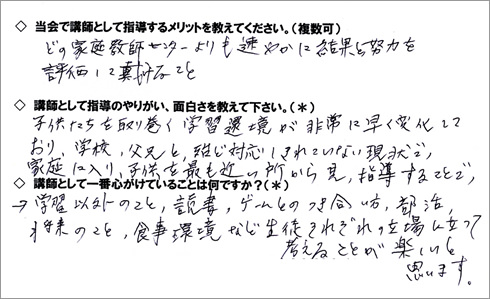 ◇ 当会で講師として指導するメリットを教えてください。（複数可）
どの家庭教師センターよりも速やかに結果と努力を
評価して頂けること
◇ 講師として指導のやりがい、面白さを教えて下さい。（＊）
子供たちを取り巻く学習環境が非常に早く変化して
おり、学校、父兄と、殆ど対応しきれていない現状で、
家庭に入り、子供を最も近い所から見、指導することで、
◇ 講師として一番心がけていることは何ですか？（＊）
→ 学習以外のこと、読書、ゲームとのつき合い方、部活、
将来のこと、食事環境など生徒それぞれの立場に立って
考えることが楽しいと
思います。